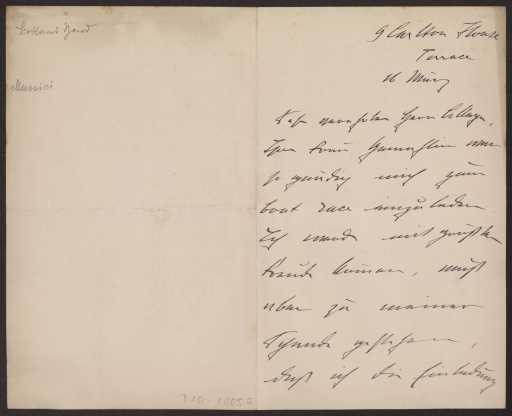 9 Carlton House
Terrace
16 März
Sehr verehrter Herr College,
Ihre Frau Gemahlin war
so gnädig mich zum
boat race einzuladen.
Ich werde mit größter
Freude kommen, muß
aber zu meiner
Schande gestehen,
daß ich die Einladung